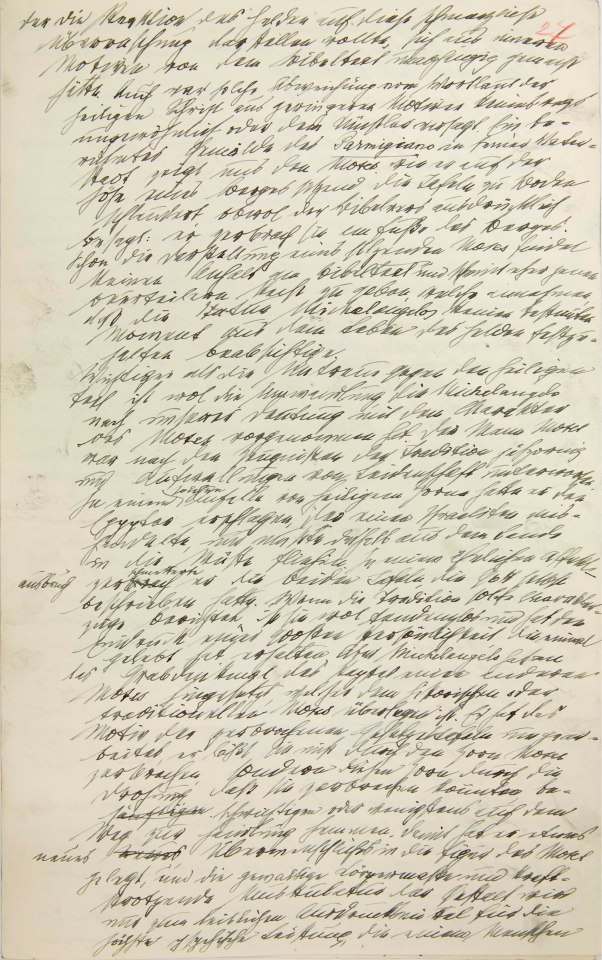 27
der die Reaktion des Helden auf diese schmerzliche
Überraschung darstellen wollte, sich aus inneren
Motiven von dem Bibeltext unabhängig gemacht
hätte. Auch war solche Abweichung vom Wortlaut der
heiligen Schrift aus geringeren Motiven keineswegs
ungewöhnlich oder dem Künstler versagt. Ein be-
rühmtes Gemälde des Parmigiano in seiner Vater-
stadt zeigt uns den Moses wie er auf der
Höhe eines Berges sitzend die Tafeln zu Boden
schleudert obwol der Bibelvers ausdrücklich
besagt: er zerbrach sie am Fuße des Berges.
Schon die Darstellung eines sitzenden Moses findet
keinen Anhalt am Bibeltext und scheint eher jenen
Beurteilern Recht zu geben, welche annahmen,
daß die Statue Michelangelos keinen bestimmten
Moment aus dem Leben des Helden festzu-
halten beabsichtige.
Wichtiger als die Untreue gegen den heiligen
Text ist wol die Umwandlung die Michelangelo
nach unserer Deutung mit dem Charakter
des Moses vorgenommen hat. Der Mann Moses
war nach den Zeugnissen der Tradition jähzornig
und Aufwallungen von Leidenschaft unterworfen.
In einem solchen Anfalle von heiligem Zorne hatte er den
Egypter erschlagen, der einen Israeliten miß-
handelte und mußte deshalb aus dem Lande
in die Wüste fliehen. In einem ähnlichen Affekt-
ausbruch zerschmetterte er die beiden Tafeln die Gott selbst
beschrieben hatte. Wenn die Tradition solche Charakter-
züge berichtet, ist sie wol tendenzlos und hat den
Eindruck einer großen Persönlichkeit die einmal
gelebt hat, erhalten. Aber Michelangelo hat an
das Grabdenkmal des Papstes einen anderen
Moses hingesetzt welcher dem historischen oder
traditionellen Moses überlegen ist. Er hat das
Motiv der zerbrochenen Gesetzestafeln umgear-
beitet, er läßt sie nicht durch den Zorn Moses
zerbrechen, sondern diesen Zorn durch die
Drohung, daß sie zerbrechen könnten be-
schwichtigen oder wenigstens auf dem
Weg zur Handlung hemmen. Damit hat er etwas
neues Übermenschliches in die Figur des Moses
gelegt, und die gewaltige Körpermasse und kraft-
strotzende Muskulatur der Gestalt wird
nur zum leiblichen Ausdrucksmittel für die
höchste psychische Leistung, die einem Menschen